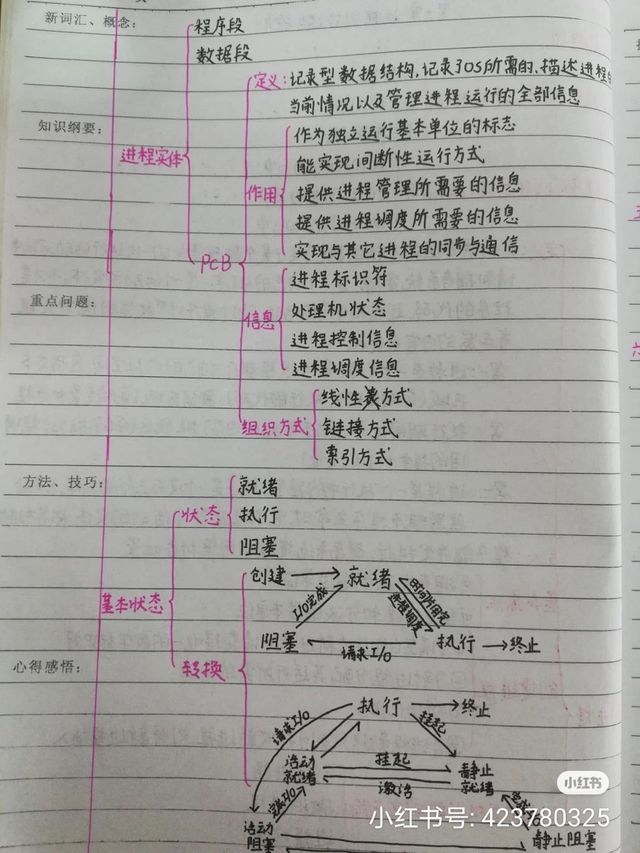 新词汇、概念：
程序段
数据段
定义：记录型数据结构，记录了OS所需的、描述进程的
当前情况以及管理进程运行的全部信息
知识纲要：
作为独立运行基本单位的标志
进程实体
能实现间断性运行方式
作用
提供进程管理所需要的信息
提供进程调度所需要的信息
实现与其它进程的同步与通信
PCB
进程标识符
重点问题：
处理机状态
信息
进程控制信息
进程调度信息
线性表方式
组织方式
链接方式
索引方式
方法、技巧：
就绪
状态
执行
阻塞
基本状态
创建
就绪
I/O完成
时间片用完
进程调度
阻塞
请求I/O
执行
终止
心得感悟：
转换
执行
终止
请求I/O
挂起
活动
就绪
挂起
激活
静止
就绪
完成I/O
活动
阻塞
静止阻塞
小红书
小红书号：423780325